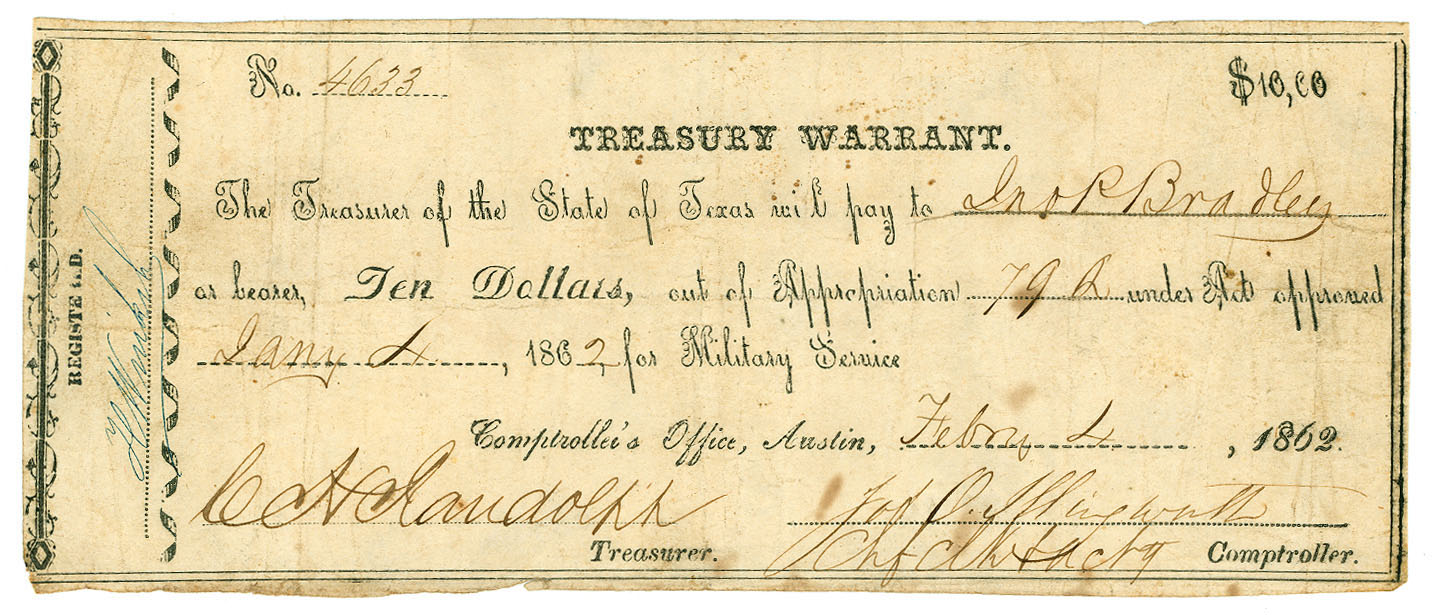 No. 4633
$10,00
TREASURY WARRANT.
The Treasurer of the State of Texas will pay to Jno P Bradley
or bearer, Ten Dollars, out of Appropriation 792 under Act approved
Jany 4, 1862, for Military Service
Comptroller's Office, Austin, Febry 4, 1862.
C H Randolph
Treasurer.
Jos O. Illingworth
Chf Clk & actg Comptroller.
REGISTERED.